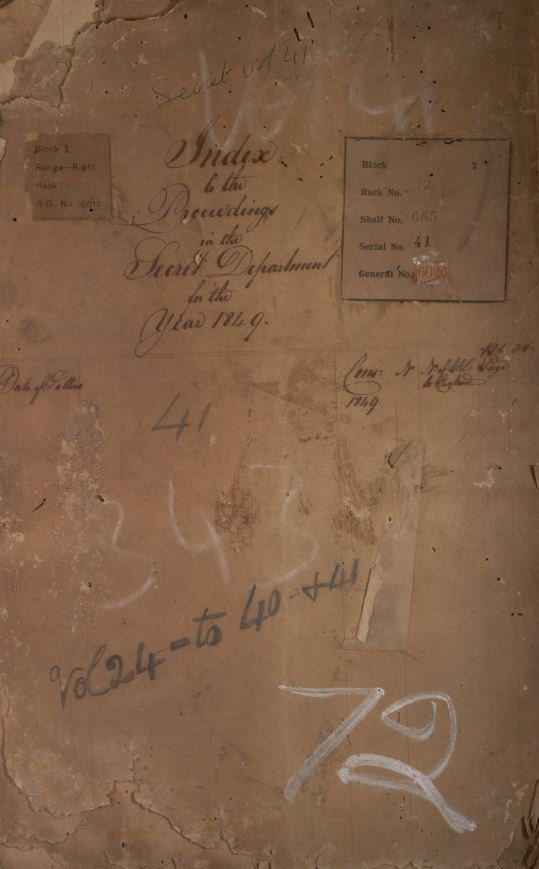 Secret Vol 41
Vol 41
Block 1
Range—Right
Rack
R.O. No. 6511
Index
to the
Proceedings
in the
Secret Department
for the
Year 1849.
Block 7
Rack No. 22
Shelf No. 665
Serial No. 41
General No.
Date of Letters
Cons:
1849.
No
No of
to England
Page
41
343
Vol 24 - to 40 - +41
72